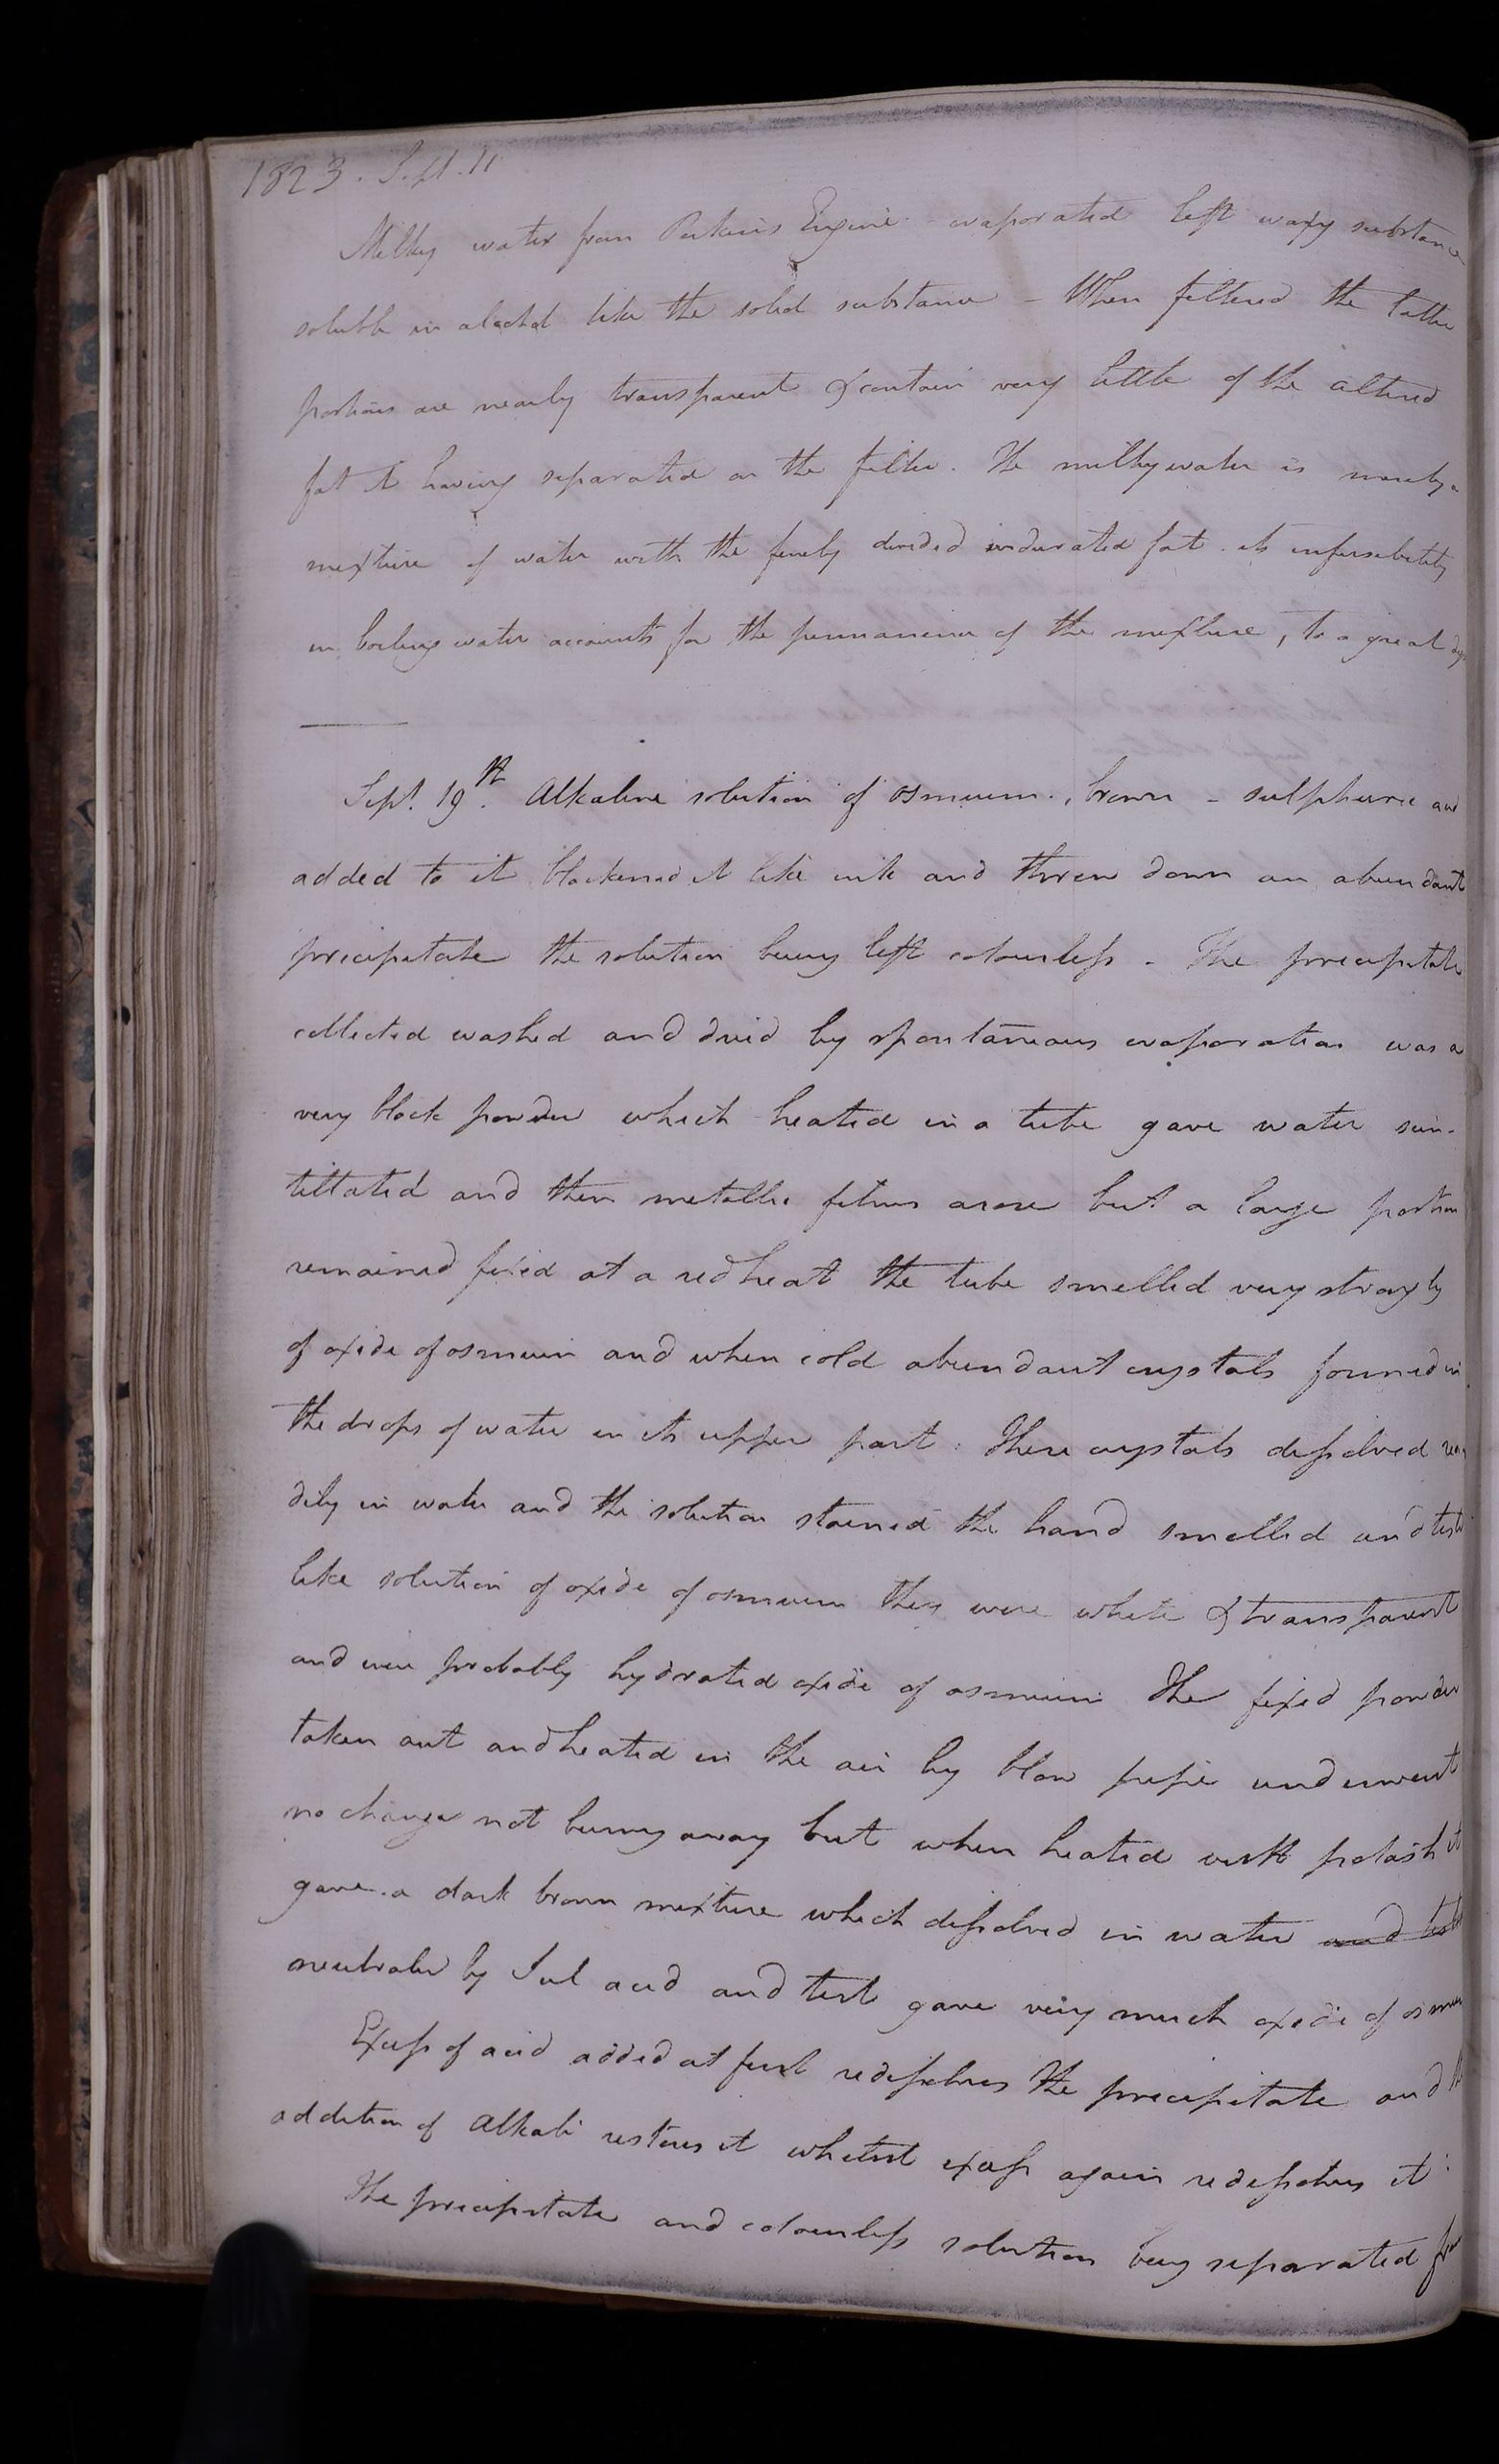 1823. Sept. 11
Milky water from Perkin's Engine - evaporated left waxy substance
soluble in alcohol like the solid substance - When filtered the latter
portions are nearly transparent & contain very little of the altered
fat it having separated on the filter. The milky water is merely a
mixture of water with the finely divided indurated fat. its infusibility
in boiling water accounts for the permanence of the mixture, to a great
Sept. 19th. Alkaline solution of osmium., brown - sulphuric
added to it blackened it like ink and threw down an abundant
precipitate the solution being left colourless - The precipitate
collected washed and dried by spontaneous evaporation was a
very black powder which heated in a tube gave water scin-
tillated and then metallic films arose but a large portion
remained fixed at a red heat the tube smelled very strongly
of oxide of osmium and when cold abundant crystals formed in
the drops of water in its upper part: These crystals dissolved rea
dily in water and the solution stained the hand smelled and
like solution of oxide of osmium they were white & transparent
and were probably hydrated oxide of osmium The fixed powder
taken out and heated in the air by blow pipe underwent
no change not burning away but when heated with potash it
gave a dark brown mixture which dissolved in water and
neutralized by Sul acid and test gave very much oxide of osmium
Excess of acid added at first redissolves the precipitate and
addition of Alkali restores it whilst excess again redissolves it
The precipitate and colourless solution being separated from